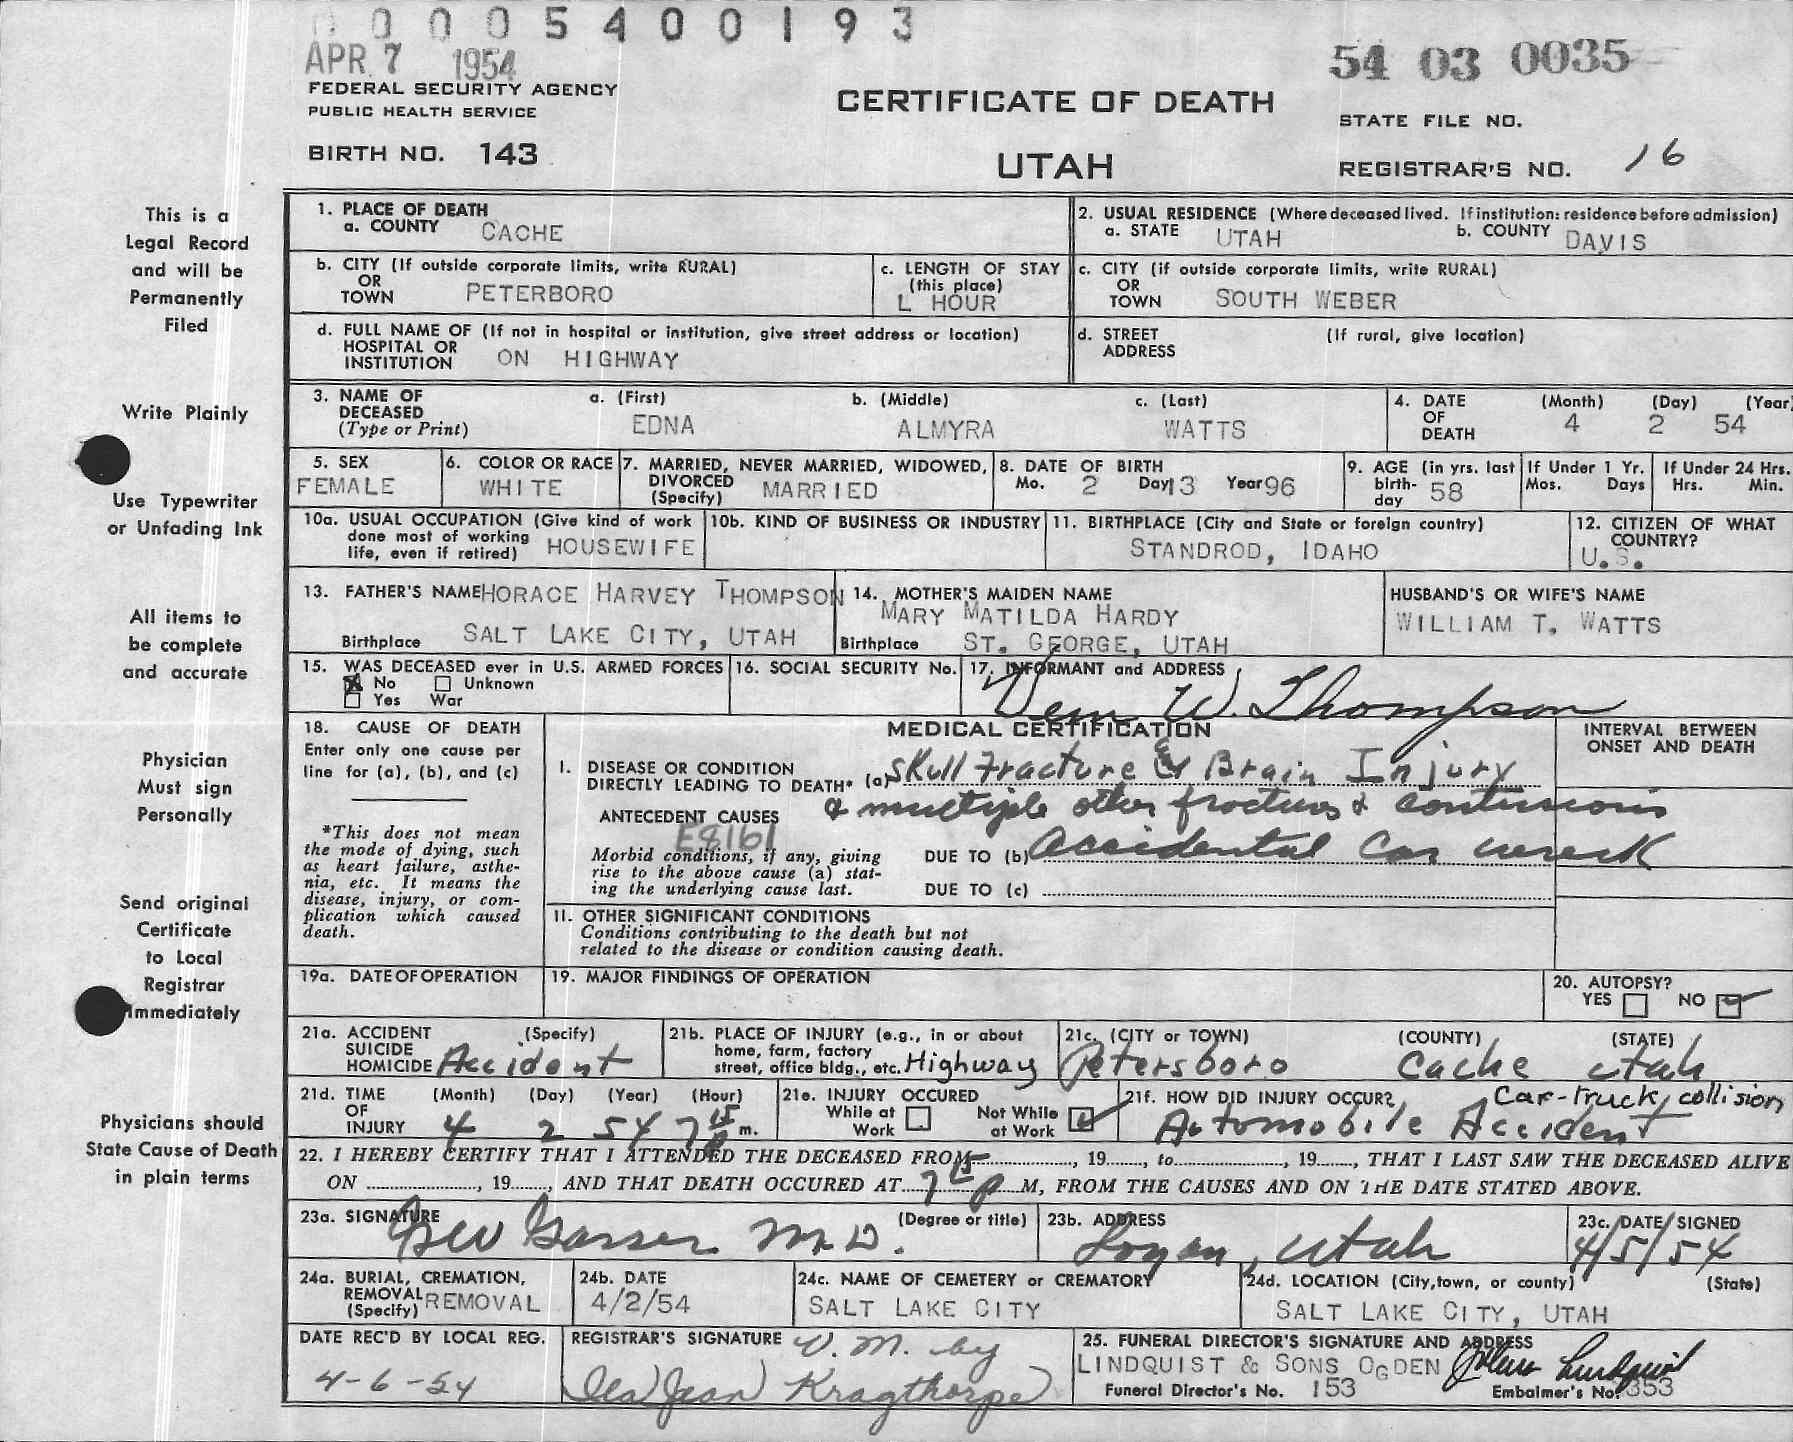 0 0 0 5 4 0 0 1 9 3
APR 7 1954
54 03 0035
FEDERAL SECURITY AGENCY
PUBLIC HEALTH SERVICE
CERTIFICATE OF DEATH
STATE FILE NO.
BIRTH NO. 143
UTAH
REGISTRAR'S NO. 16
This is a
Legal Record
and will be
Permanently
Filed
Write Plainly
Use Typewriter
or Unfading Ink
All items to
be complete
and accurate
Physician
Must sign
Personally
Send original
Certificate
to Local
Registrar
Immediately
Physicians should
State Cause of Death
in plain terms
1. PLACE OF DEATH
a. COUNTY CACHE
2. USUAL RESIDENCE (Where deceased lived. If institution: residence before admission)
a. STATE UTAH b. COUNTY DAVIS
b. CITY (If outside corporate limits, write RURAL)
OR
TOWN PETERBORO
c. LENGTH OF STAY
(this place)
L HOUR
c. CITY (if outside corporate limits, write RURAL)
OR
TOWN SOUTH WEBER
d. FULL NAME OF (If not in hospital or institution, give street address or location)
HOSPITAL OR
INSTITUTION ON HIGHWAY
d. STREET (If rural, give location)
ADDRESS
3. NAME OF DECEASED (Type or Print)
a. (First) EDNA
b. (Middle) ALMYRA
c. (Last) WATTS
4. DATE OF DEATH (Month) (Day) (Year)
4 2 54
5. SEX
FEMALE
6. COLOR OR RACE
WHITE
7. MARRIED, NEVER MARRIED, WIDOWED,
DIVORCED
(Specify) MARRIED
8. DATE OF BIRTH
Mo. 2 Day 13 Year 96
9. AGE (in yrs. last
birth-
day 58
If Under 1 Yr.
Mos. Days
If Under 24 Hrs.
Hrs. Min.
10a. USUAL OCCUPATION (Give kind of work
done most of working
life, even if retired) HOUSEWIFE
10b. KIND OF BUSINESS OR INDUSTRY
11. BIRTHPLACE (City and State or foreign country)
STANDROD, IDAHO
12. CITIZEN OF WHAT
COUNTRY?
U.S.
13. FATHER'S NAME HORACE HARVEY THOMPSON
Birthplace SALT LAKE CITY, UTAH
14. MOTHER'S MAIDEN NAME
MARY MATILDA HARDY
Birthplace ST. GEORGE, UTAH
HUSBAND'S OR WIFE'S NAME
WILLIAM T. WATTS
15. WAS DECEASED ever in U.S. ARMED FORCES
No Unknown
Yes War
16. SOCIAL SECURITY No.
17. INFORMANT and ADDRESS
W. Thompson
18. CAUSE OF DEATH
Enter only one cause per
line for (a), (b), and (c)
*This does not mean
the mode of dying, such
as heart failure, asthe-
nia, etc. It means the
disease, injury, or com-
plication which caused
death.
MEDICAL CERTIFICATION
INTERVAL BETWEEN
ONSET AND DEATH
I. DISEASE OR CONDITION
DIRECTLY LEADING TO DEATH* (a) Skull Fracture & Brain Injury
& multiple other fractures & contusions
ANTECEDENT CAUSES
E8161
Morbid conditions, if any, giving
rise to the above cause (a) stat-
ing the underlying cause last.
DUE TO (b) Accidental Car wreck
DUE TO (c)
II. OTHER SIGNIFICANT CONDITIONS
Conditions contributing to the death but not
related to the disease or condition causing death.
19a. DATE OF OPERATION
19. MAJOR FINDINGS OF OPERATION
20. AUTOPSY?
YES NO
21a. ACCIDENT (Specify)
SUICIDE
HOMICIDE Accident
21b. PLACE OF INJURY (e.g., in or about
home, farm, factory
street, office bldg., etc. Highway
21c. (CITY or TOWN) (COUNTY) (STATE)
Petersboro Cache Utah
21d. TIME OF INJURY (Month) (Day) (Year) (Hour)
4 2 54 7 15 P m.
21e. INJURY OCCURED
While at Work Not While at Work
21f. HOW DID INJURY OCCUR? Car-truck collision
Automobile Accident
22. I HEREBY CERTIFY THAT I ATTENDED THE DECEASED FROM , 19 , to , 19 , THAT I LAST SAW THE DECEASED ALIVE
ON , 19 , AND THAT DEATH OCCURED AT 7 15 P M, FROM THE CAUSES AND ON THE DATE STATED ABOVE.
23a. SIGNATURE (Degree or title)
Geo Gasser M.D.
23b. ADDRESS
Logan, Utah
23c. DATE SIGNED
4/5/54
24a. BURIAL, CREMATION,
REMOVAL
(Specify) REMOVAL
24b. DATE
4/2/54
24c. NAME OF CEMETERY or CREMATORY
SALT LAKE CITY
24d. LOCATION (City, town, or county) (State)
SALT LAKE CITY, UTAH
DATE REC'D BY LOCAL REG.
4-6-54
REGISTRAR'S SIGNATURE V. M. by
Ila Jean Kragthorpe
25. FUNERAL DIRECTOR'S SIGNATURE AND ADDRESS
LINDQUIST & SONS OGDEN Lindquist
Funeral Director's No. 153
Embalmer's No. 353